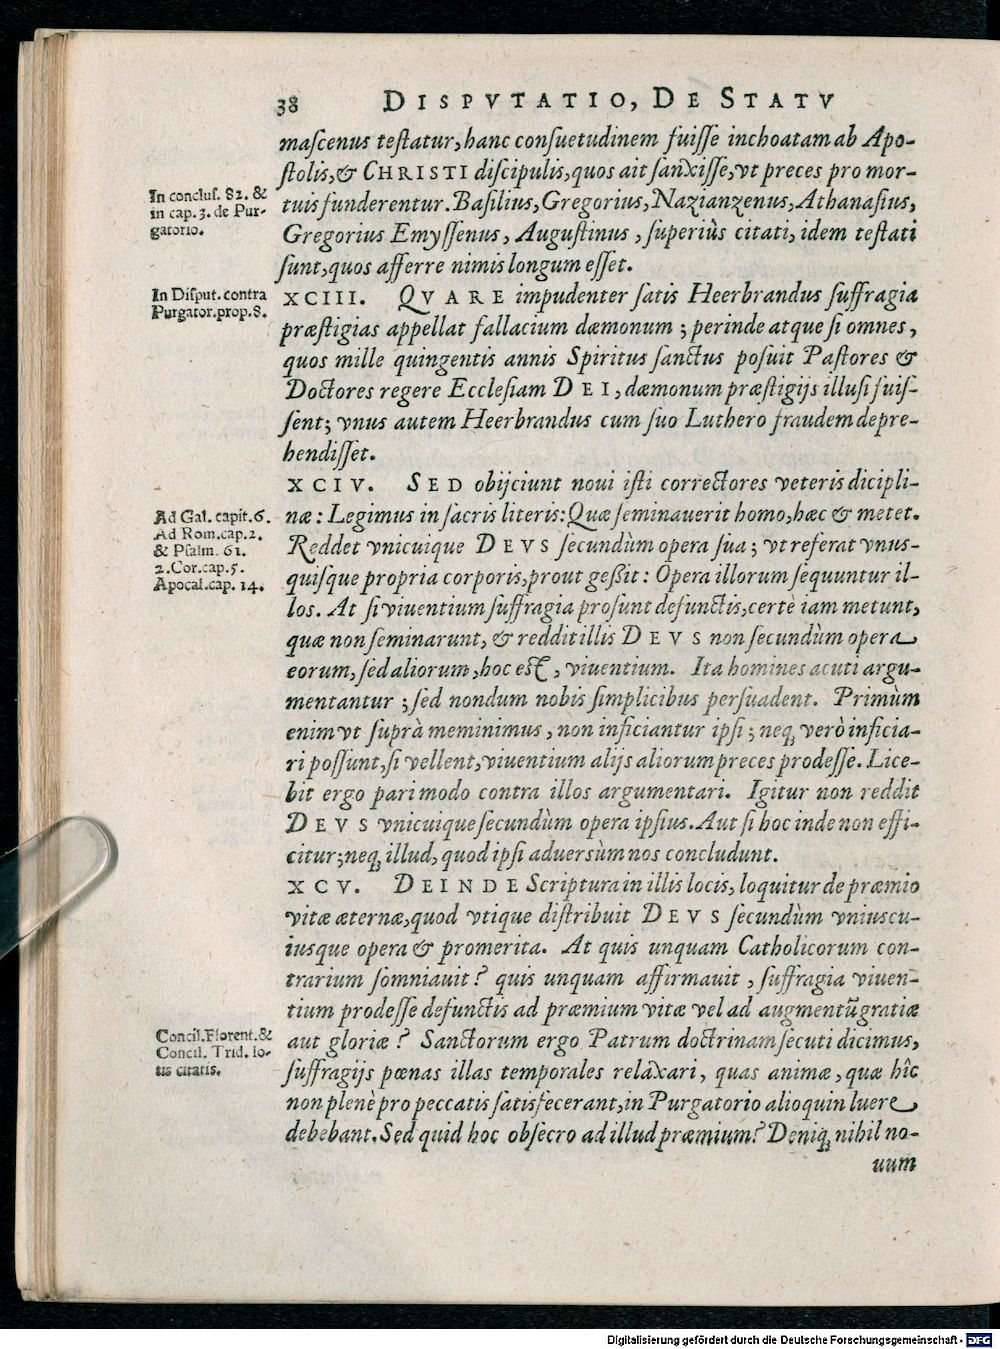 38 DISPVTATIO, DE STATV
maſcenus teſtatur, hanc conſuetudinem fuiſſe inchoatam ab Apo-
ſtolis, & CHRISTI diſcipulis, quos ait ſanxiſſe, vt preces pro mor-
In concluſ. 82. &
in cap. 3. de Pur-
gatorio.
tuis funderentur. Baſilius, Gregorius, Nazianzenus, Athanaſius,
Gregorius Emyſſenus, Auguſtinus, ſuperiùs citati, idem teſtati
ſunt, quos afferre nimis longum eſſet.
In Diſput. contra
Purgator. prop. 8.
XCIII. QVARE impudenter ſatis Heerbrandus ſuffragia
præſtigias appellat fallacium dæmonum; perinde atque ſi omnes,
quos mille quingentis annis Spiritus ſanctus poſuit Paſtores &
Doctores regere Eccleſiam DEI, dæmonum præſtigijs illuſi fuiſ-
ſent; vnus autem Heerbrandus cum ſuo Luthero fraudem depre-
hendiſſet.
XCIV. SED obijciunt noui iſti correctores veteris dicipli-
Ad Gal. capit. 6.
Ad Rom. cap. 2.
& Pſalm. 61.
2. Cor. cap. 5.
Apocal. cap. 14.
næ: Legimus in ſacris literis: Quæ ſeminauerit homo, hæc & metet.
Reddet vnicuique DEVS ſecundùm opera ſua; vt referat vnus-
quiſque propria corporis, prout geßit: Opera illorum ſequuntur il-
los. At ſi viuentium ſuffragia proſunt defunctis, certè iam metunt,
quæ non ſeminarunt, & reddit illis DEVS non ſecundùm opera
eorum, ſed aliorum, hoc eſt, viuentium. Ita homines acuti argu-
mentantur; ſed nondum nobis ſimplicibus perſuadent. Primùm
enim vt ſuprà meminimus, non inficiantur ipſi; neq; verò inficia-
ri poſſunt, ſi vellent, viuentium alijs aliorum preces prodeſſe. Lice-
bit ergo pari modo contra illos argumentari. Igitur non reddit
DEVS vnicuique ſecundùm opera ipſius. Aut ſi hoc inde non effi-
citur; neq; illud, quod ipſi aduersùm nos concludunt.
XCV. DEINDE Scriptura in illis locis, loquitur de præmio
vitæ æternæ, quod vtique diſtribuit DEVS ſecundùm vniuscu-
iusque opera & promerita. At quis unquam Catholicorum con-
trarium ſomniauit? quis unquam affirmauit, ſuffragia viuen-
tium prodeſſe defunctis ad præmium vitæ vel ad augmentũ gratiæ
Concil. Florent. &
Concil. Trid. lo-
tis citatis.
aut gloriæ? Sanctorum ergo Patrum doctrinam ſecuti dicimus,
ſuffragijs pœnas illas temporales relaxari, quas animæ, quæ hîc
non plenè pro peccatis ſatisfecerant, in Purgatorio alioquin luere
debebant. Sed quid hoc obſecro ad illud præmium? Deniq; nihil no-
uum
Digitalisierung gefördert durch die Deutsche Forschungsgemeinschaft - DFG